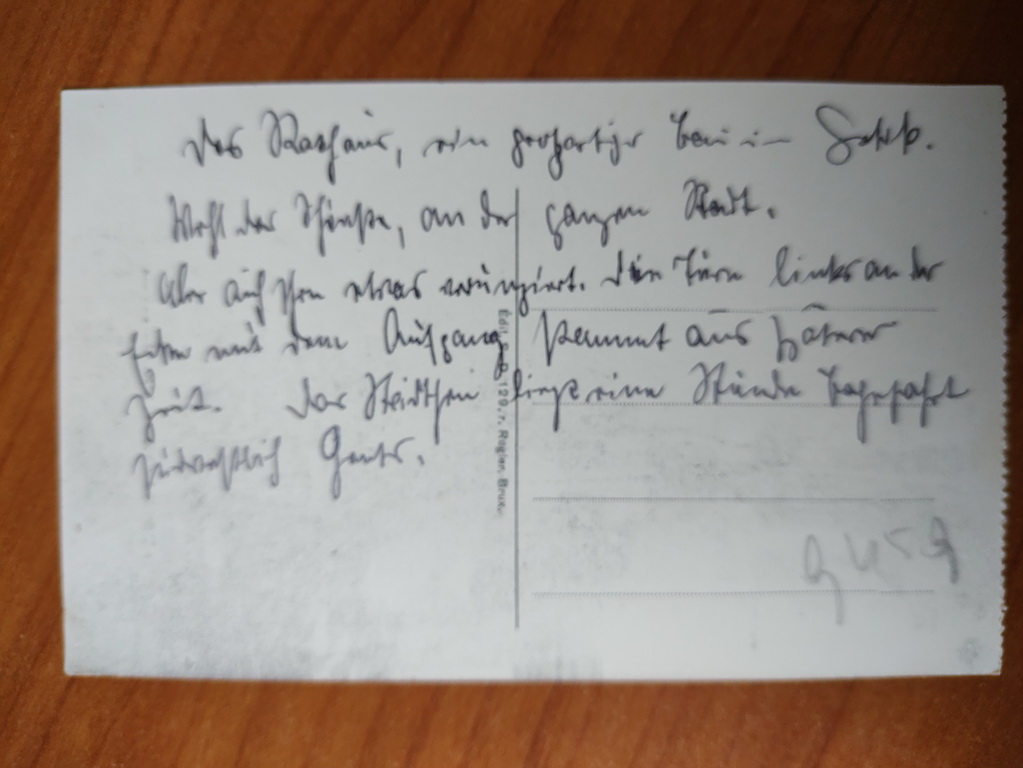 Das Rathaus, ein großartiger Bau in Gotik.
Wohl das Schönste, an der ganzen Stadt.
Aber auch schon etwas verunziert. Der Turm links an der
Ecke mit dem Aufgang stammt aus späterer
Zeit. Das Städtchen liegt eine Stunde Bahnfahrt
südwestlich Gents.
Édit. 129, r. Rogier, Brux.